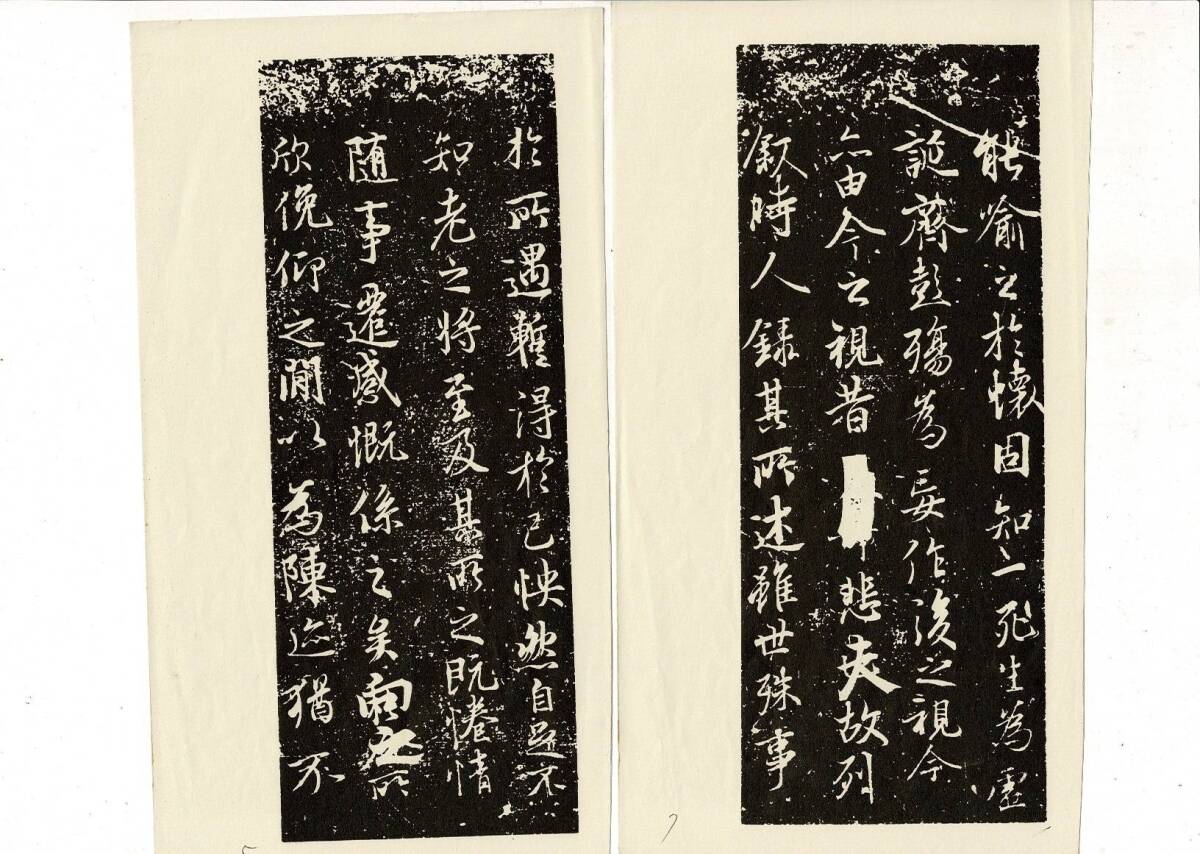 能喻之於懷固知一死生為虛
誕齊彭殤為妄作後之視今
亦由今之視昔悲夫故列
敘時人錄其所述雖世殊事
7
於所遇暫得於己怏然自足不
知老之將至及其所之既惓情
隨事遷感慨係之矣向之所
欣俛仰之閒以為陳迹猶不